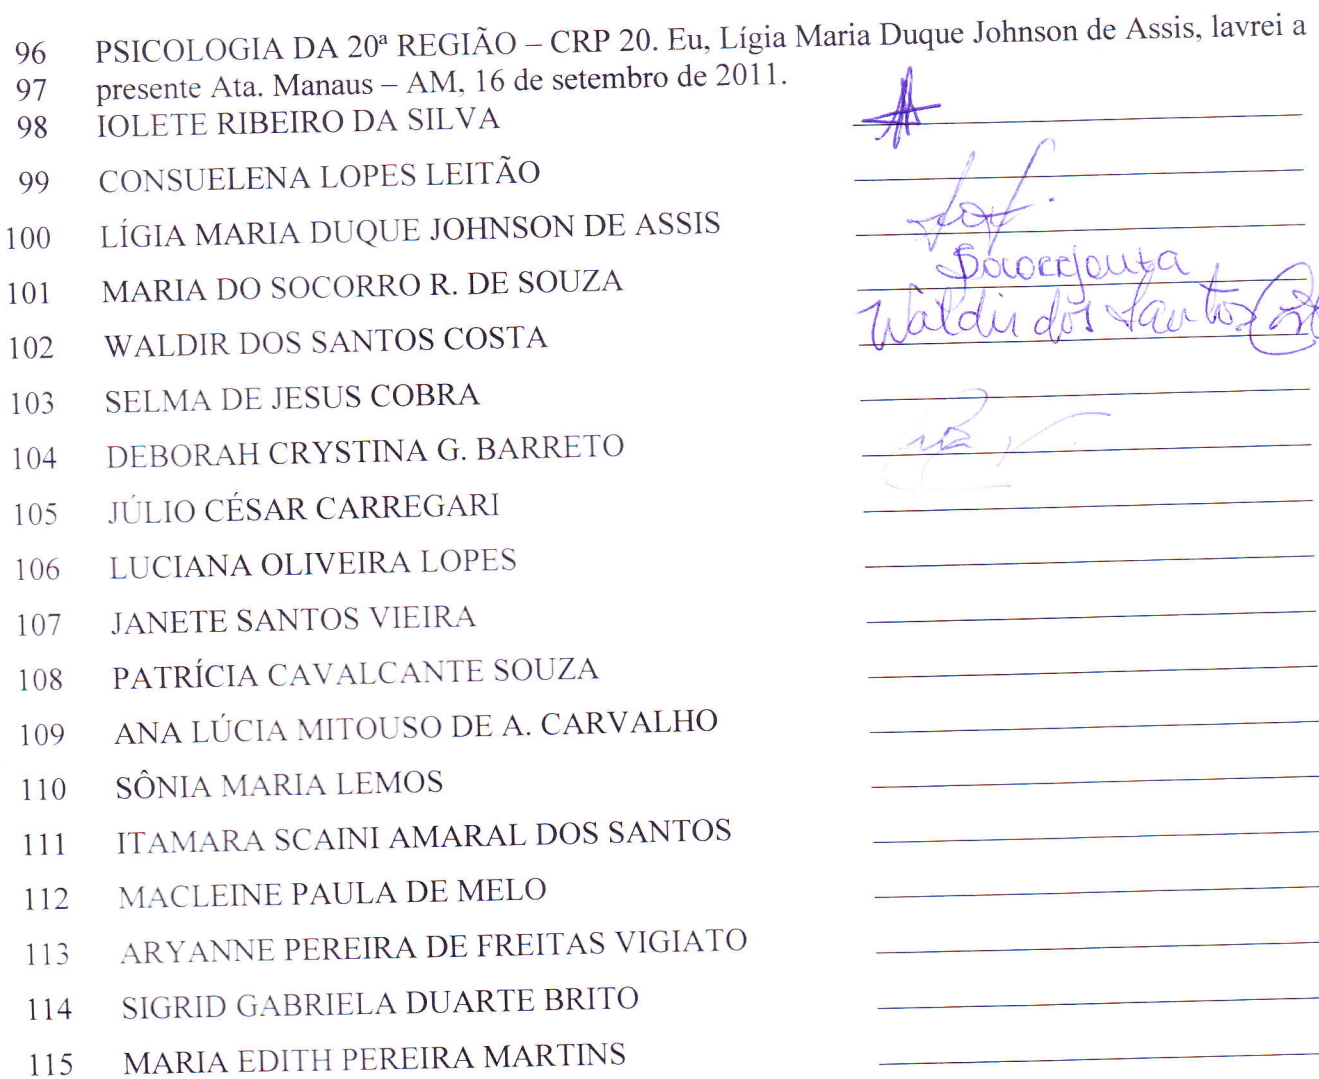 96 PSICOLOGIA DA 20ª REGIÃO – CRP 20. Eu, Lígia Maria Duque Johnson de Assis, lavrei a
97 presente Ata. Manaus – AM, 16 de setembro de 2011.
98 IOLETE RIBEIRO DA SILVA
99 CONSUELENA LOPES LEITÃO
100 LÍGIA MARIA DUQUE JOHNSON DE ASSIS
101 MARIA DO SOCORRO R. DE SOUZA
102 WALDIR DOS SANTOS COSTA Waldir dos Santos
103 SELMA DE JESUS COBRA
104 DEBORAH CRYSTINA G. BARRETO
105 JÚLIO CÉSAR CARREGARI
106 LUCIANA OLIVEIRA LOPES
107 JANETE SANTOS VIEIRA
108 PATRÍCIA CAVALCANTE SOUZA
109 ANA LÚCIA MITOUSO DE A. CARVALHO
110 SÔNIA MARIA LEMOS
111 ITAMARA SCAINI AMARAL DOS SANTOS
112 MACLEINE PAULA DE MELO
113 ARYANNE PEREIRA DE FREITAS VIGIATO
114 SIGRID GABRIELA DUARTE BRITO
115 MARIA EDITH PEREIRA MARTINS